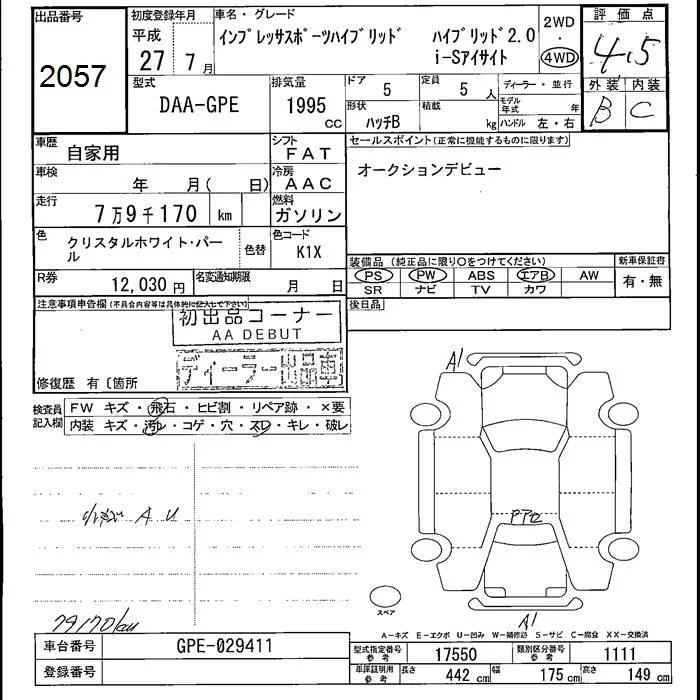 出品番号
2057
初度登録年月
平成
27 7月
車名・グレード
インプレッサスポーツハイブリッド ハイブリッド2.0
i-Sアイサイト
2WD
・
4WD
評価点
4.5
外装 内装
B C
型式
DAA-GPE
排気量
1995
cc
ドア
5
定員
5 人
形状
ハッチB
積載
kg
ディーラー・並行
モデル年式 年
ハンドル 左・右
車歴
自家用
シフト
FAT
車検
年 月( 日)
冷房
AAC
走行
7万9千170 km
燃料
ガソリン
色
クリスタルホワイト・パール
色替
色コード
K1X
R券
12,030円
名変通知期限
月 日
セールスポイント(正常に機能するものに限ります)
オークションデビュー
装備品(純正品に限り○をつけてください)
PS PW ABS エアB AW
SR ナビ TV カワ
新車保証書
有・無
後日品
注意事項申告欄(不具合内容等は具体的に記入して下さい)
初出品コーナー
AA DEBUT
ディーラー出品車
修復歴 有〔箇所
検査員記入欄
FW キズ・飛石・ヒビ割・リペア跡・×要
内装 キズ・汚レ・コゲ・穴・スレ・キレ・破レ
A1
A U
79170km
A1
スペア
A-キズ E-エクボ U-凹み W-補修跡 S-サビ C-腐食 XX-交換済
車台番号
GPE-029411
登録番号
型式指定番号
参考
17550
類別区分番号
参考
1111
車庫証明用
参考
長さ 442cm 幅 175cm 高さ 149cm